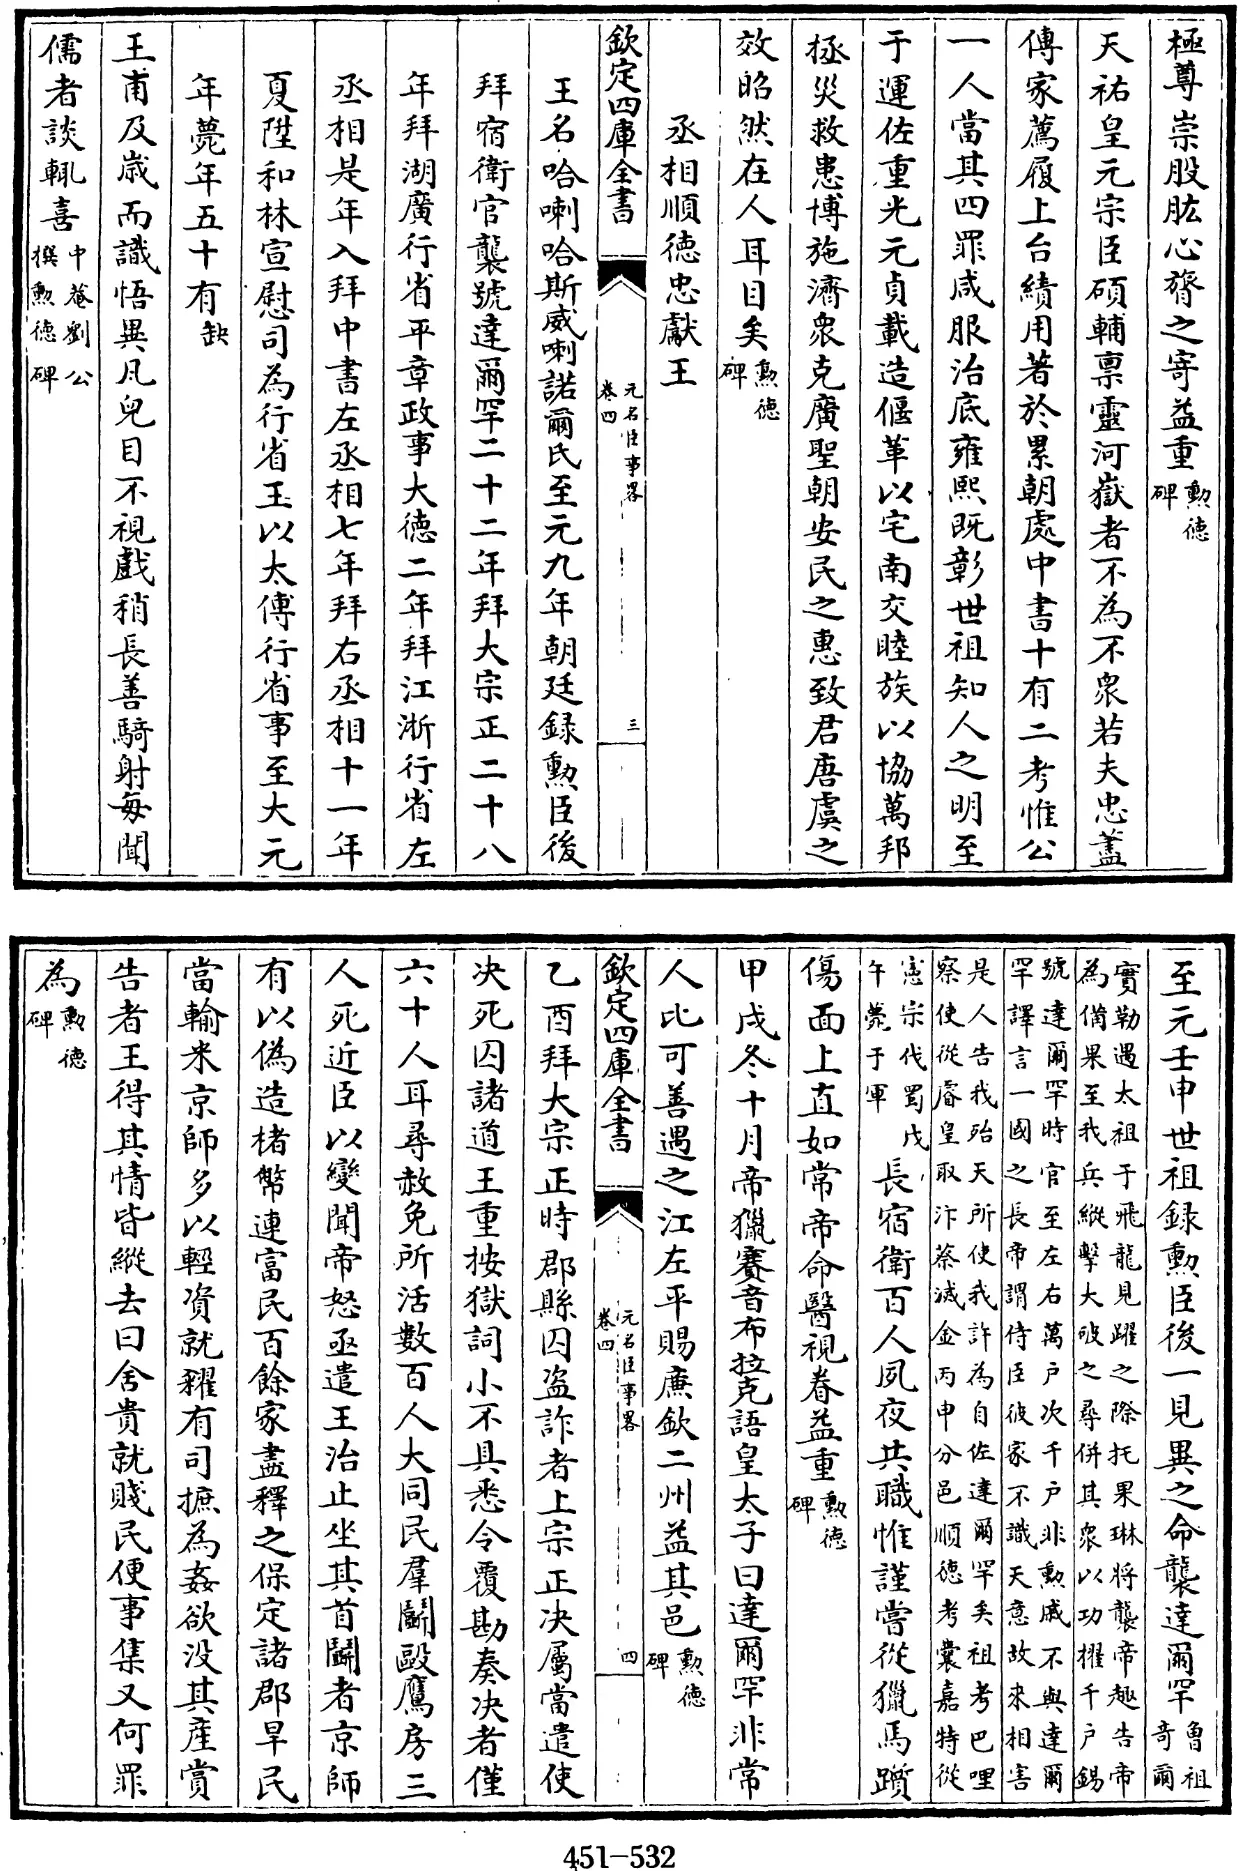 極尊崇股肱心膂之寄益重勲德碑
天祐皇元宗臣碩輔禀靈河嶽者不為不衆若夫忠藎
傳家薦履上台績用著於累朝處中書十有二考惟公
一人當其四罪咸服治底雍熙既彰世祖知人之明至
于運佐重光元貞載造偃革以宅南交睦族以協萬邦
拯災救患博施濟衆克廣聖朝安民之惠致君唐虞之
效昭然在人耳目矣勲德碑
丞相順德忠獻王
欽定四庫全書
元名臣事畧
卷四
三
王名哈喇哈斯威喇諾爾氏至元九年朝廷録勲臣後
拜宿衛官襲號達爾罕二十二年拜大宗正二十八
年拜湖廣行省平章政事大德二年拜江淅行省左
丞相是年入拜中書左丞相七年拜右丞相十一年
夏陞和林宣慰司為行省王以太傅行省事至大元
年薨年五十有缺
王甫及歳而識悟異凡兒目不視戲稍長善騎射每聞
儒者談輒喜中菴劉公撰勲德碑
至元壬申世祖録勲臣後一見異之命襲達爾罕魯祖奇爾
實勒遇太祖于飛龍見躍之際托果琳將襲帝趣告帝
為備果至我兵縱擊大破之尋併其衆以功擢千户錫
號達爾罕時官至左右萬户次千户非勲戚不與達爾
罕譯言一國之長帝謂侍臣彼家不識天意故來相害
是人告我殆天所使我許為自佐達爾罕矣祖考巴哩
察使從睿皇取汴蔡滅金丙申分邑順德考囊嘉特從
憲宗伐蜀戊午薨于軍長宿衛百人夙夜共職惟謹嘗從獵馬躓
傷面上直如常帝命醫視眷益重勲德碑
甲戌冬十月帝獵賽音布拉克語皇太子曰達爾罕非常
人比可善遇之江左平賜亷欽二州益其邑勲德碑
欽定四庫全書
元名臣事畧
卷四
四
乙酉拜大宗正時郡縣囚盗詐者上宗正決屬當遣使
決死囚諸道王重按獄詞小不具悉令覆勘奏決者僅
六十人耳尋赦免所活數百人大同民羣鬭毆鷹房三
人死近臣以變聞帝怒亟遣王治止坐其首鬭者京師
有以偽造楮幣連富民百餘家盡釋之保定諸郡旱民
當輸米京師多以輕資就糴有司摭為姦欲没其産賞
告者王得其情皆縱去曰舍貴就賤民便事集又何罪
為勲德碑
451-532